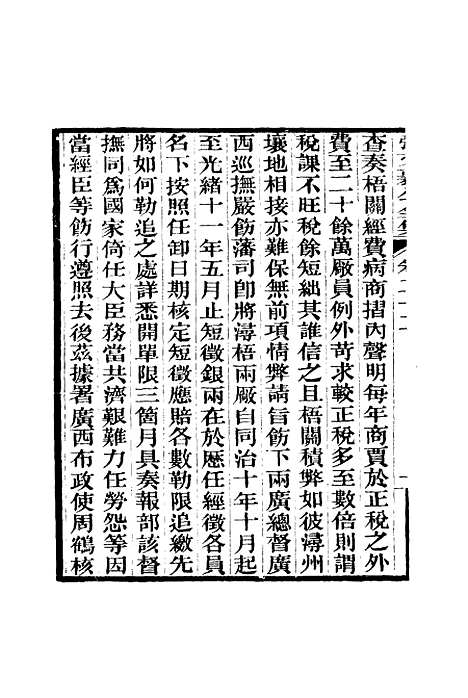 查奏梧關經費病商摺內聲明每年商賈於正稅之外
費至二十餘萬厰員例外苛求較正稅多至數倍則謂
稅課不旺稅餘短絀其誰信之且梧關積弊如彼潯州
壤地相接亦難保無前項情弊請旨飭下兩廣總督廣
西巡撫嚴飭藩司卽將潯梧兩厰自同治十年十月起
至光緒十一年五月止短徵銀兩在於歷任經徵各員
名下按照任卸日期核定短徵應賠各數勒限追繳先
將如何勒追之處詳悉開單限三箇月具奏報部該督
撫同爲國家倚任大臣務當共濟艱難力任勞怨等因
當經臣等飭行遵照去後茲據署廣西布政使周鶴核